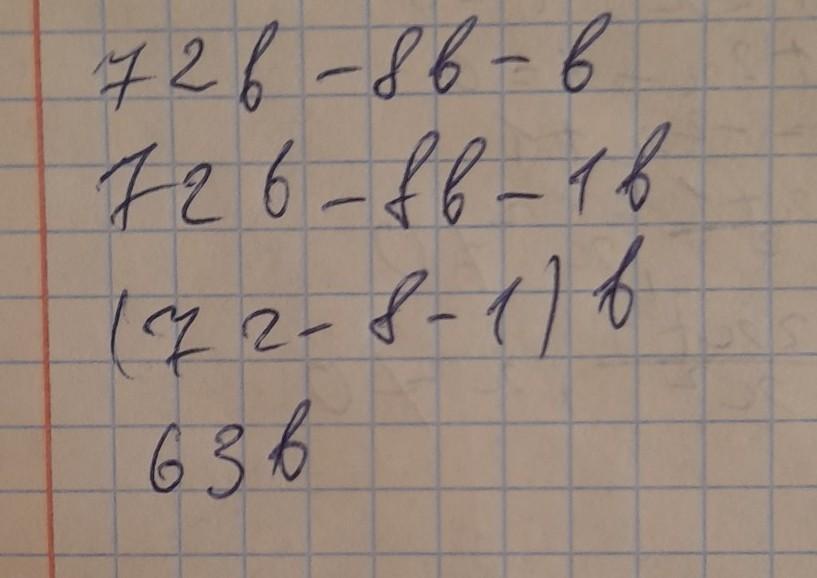 72b - 8b - b
72b - 8b - 1b
(72 - 8 - 1) b
63b